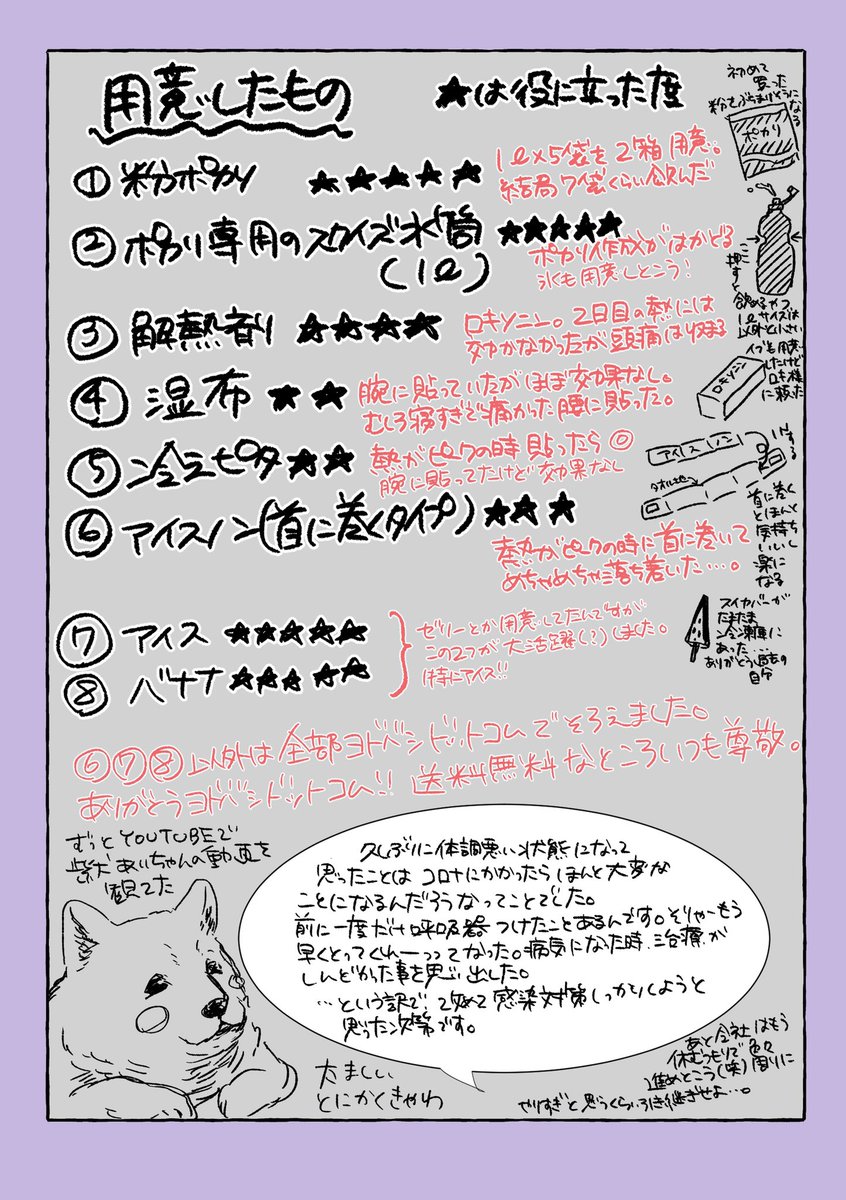 用意したもの
★は役に立った度
① 粉ポカリ ★★★★★
1ℓ×5袋を2箱用意。
結局7袋くらい飲んだ
② ポカリ専用のスクイズ水筒 ★★★★★
(1ℓ)
ポカリ作成がはかどる
氷も用意しとこう!
③ 解熱剤 ★★★★
ロキソニン。2日目の熱には
効かなかったが頭痛は収まる
④ 湿布 ★★
腕に貼っていたがほぼ効果なし。
むしろ寝すぎで痛かった腰に貼った。
⑤ 冷えピタ ★★
熱がピークの時貼ったら◎
腕に貼ってたけど効果なし
⑥ アイスノン(首に巻くタイプ) ★★★
熱がピークの時に首に巻いて
めちゃめちゃ落ち着いた…。
⑦ アイス ★★★★★
⑧ バナナ ★★★★★
ゼリーとか用意してたんですが
この2つが大活躍(?)しました。
特にアイス!!
⑥⑦⑧以外は全部ヨドバシドットコムでそろえました。
ありがとうヨドバシドットコム!! 送料無料なところいつも尊敬。
初めて
買った
粉をぶちまけそうになる
ポカリ
ここ
押すと
飲めるヤツ
1ℓサイズは
以外と小さい
イブも用意
したけど
ロキ様
に頼った
ロキソニン
アイスノン
タオルピ
首に巻く
とほんと
気持ち
いいし
楽に
なる
スイカバーが
たまたま
冷凍庫に
あった…
ありがとう過去の
自分
ずっとYOUTUBEで
柴犬あいちゃんの動画を
観てた
久しぶりに体調悪い状態になって
思ったことはコロナにかかったらほんと大変な
ことになるんだろうなってことでした。
前に一度だけ呼吸器つけたことあるんです。そりゃーもう
早くとってくれーってなった。病気になった時、治療が
しんどかった事を思い出した。
…という訳で、改めて感染対策しっかりしようと
思った次第です。
たましい
とにかくきゃわ
あと会社はもう
休むつもりで色々
進めとこう(味) 周りに
やりすぎと思うくらい引き継ぎせよ…。